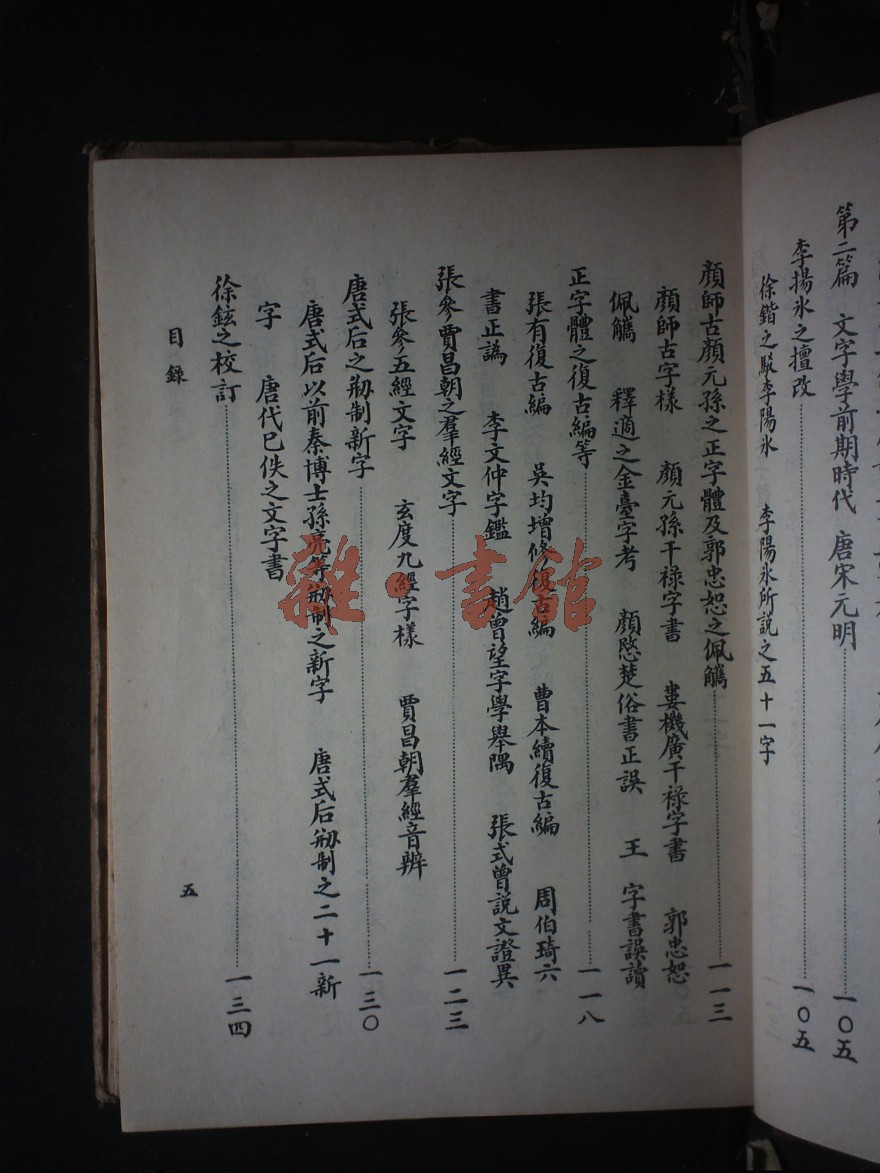 第二篇　文字學前期時代　唐宋元明……一〇五
李揚氷之擅改……一〇五
徐鍇之駁李陽氷　李陽氷所説之五十一字
顏師古顏元孫之正字體及郭忠恕之佩觿……一一三
顏師古字樣　顏元孫干祿字書　婁機廣干祿字書　郭忠恕
佩觿　釋適之金臺字考　顏愍楚俗書正誤　王　字書誤讀
正字體之復古編等……一一八
張有復古編　吳均增修復古編　曹本續復古編　周伯琦六
書正譌　李文仲字鑑　趙曾望字學舉隅　張式曾説文證異
張參賈昌朝之羣經文字……一二三
張參五經文字　玄度九經字樣　賈昌朝羣經音辨
唐式后之剏制新字……一三〇
唐式后以前秦博士孫亮等剏制之新字　唐式后剏制之二十一新
字　唐代已佚之文字書
徐鉉之校訂……一三四
目錄
五
雜·書館